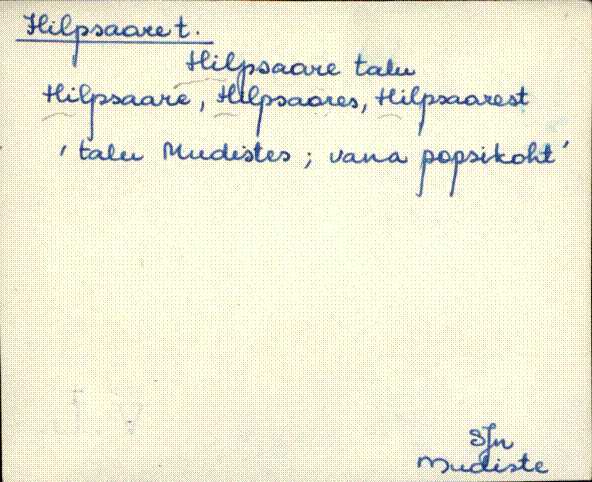 Hilpsaare t.
Hilpsaare talu
Hilpsaare, Hilpsaares, Hilpsaarest
' talu Mudistes ; vana popsikoht '
SJn
Mudiste